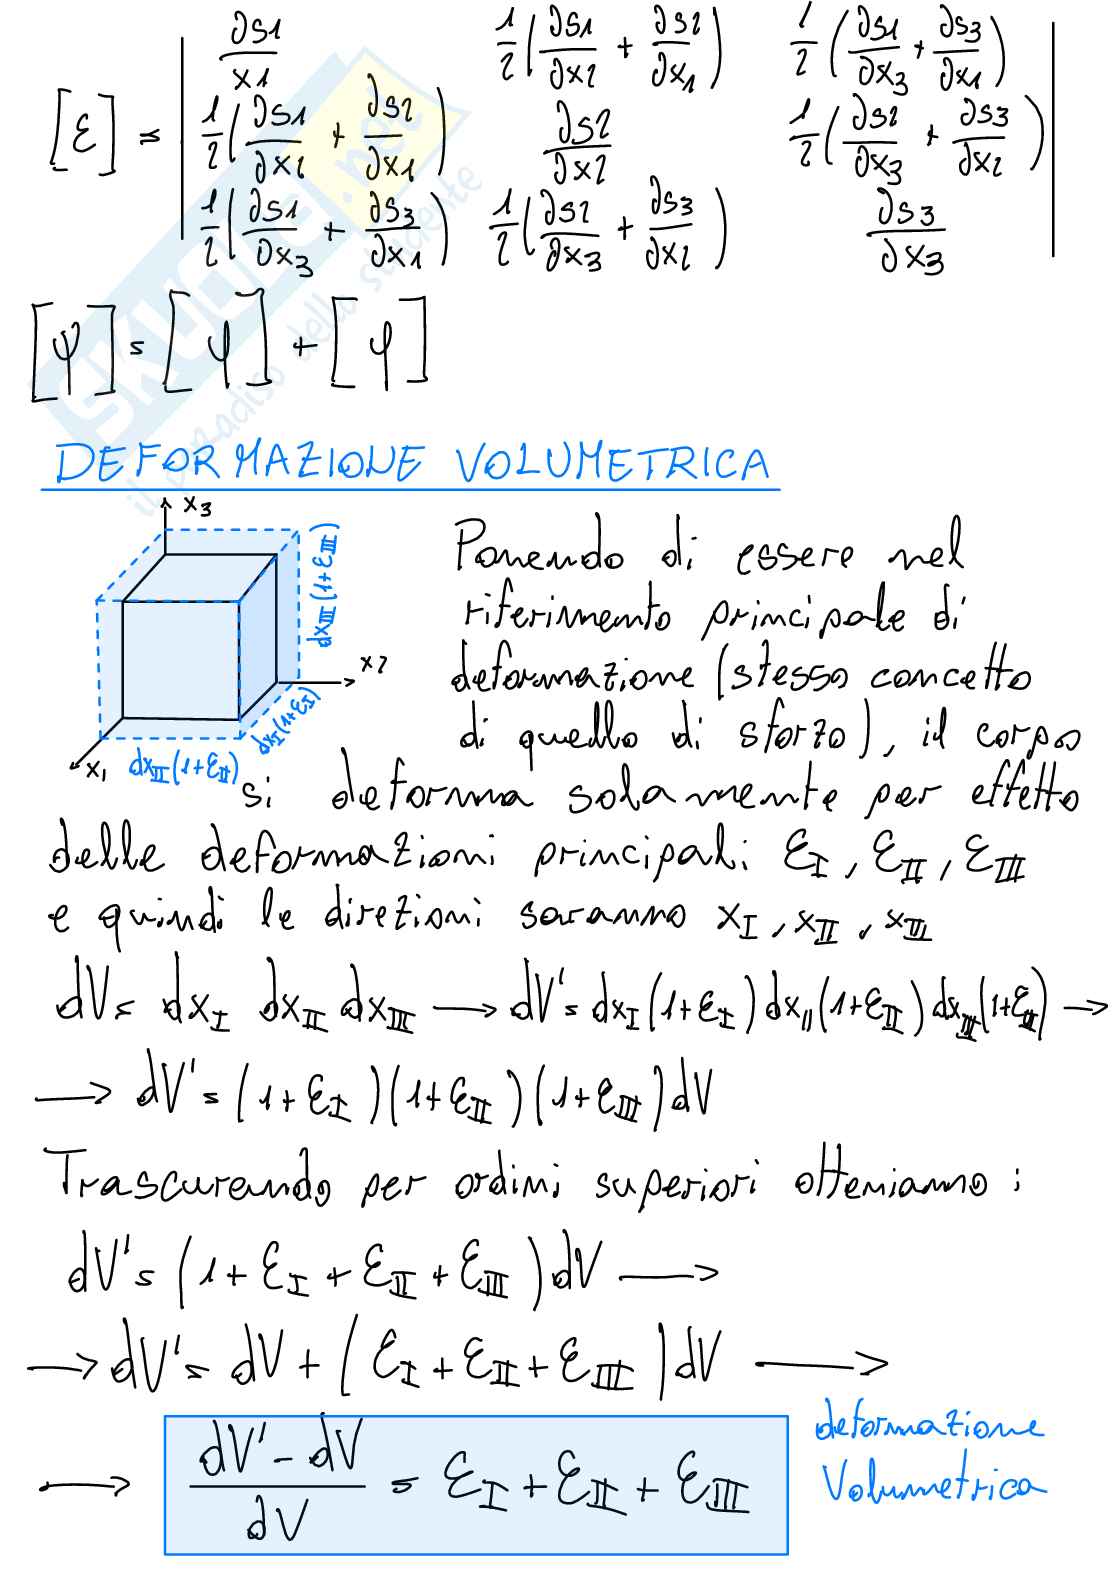 [ε] = | ∂s1/x1   1/2(∂s1/∂x2 + ∂s2/∂x1)   1/2(∂s1/∂x3 + ∂s3/∂x1) |
| 1/2(∂s1/∂x2 + ∂s2/∂x1)   ∂s2/∂x2   1/2(∂s2/∂x3 + ∂s3/∂x2) |
| 1/2(∂s1/∂x3 + ∂s3/∂x1)   1/2(∂s2/∂x3 + ∂s3/∂x2)   ∂s3/∂x3 |
[ψ] = [φ] + [φ]
SKUOLA.net
il paradiso dello studente
DEFORMAZIONE VOLUMETRICA
x3
dxIII(1+εIII)
x2
dxI(1+εI)
x1
dxII(1+εII)
Ponendo di essere nel
riferimento principale di
deformazione (stesso concetto
di quello di sforzo), il corpo
si deforma solamente per effetto
delle deformazioni principali: εI, εII, εIII
e quindi le direzioni saranno xI, xII, xIII
dV = dxI dxII dxIII → dV' = dxI(1+εI)dxII(1+εII)dxIII(1+εIII) →
→ dV' = (1+εI)(1+εII)(1+εIII)dV
Trascurando per ordini superiori otteniamo:
dV' = (1+εI+εII+εIII)dV →
→ dV' = dV + (εI+εII+εIII)dV →
→ (dV' - dV)/dV = εI + εII + εIII
deformazione
Volumetrica